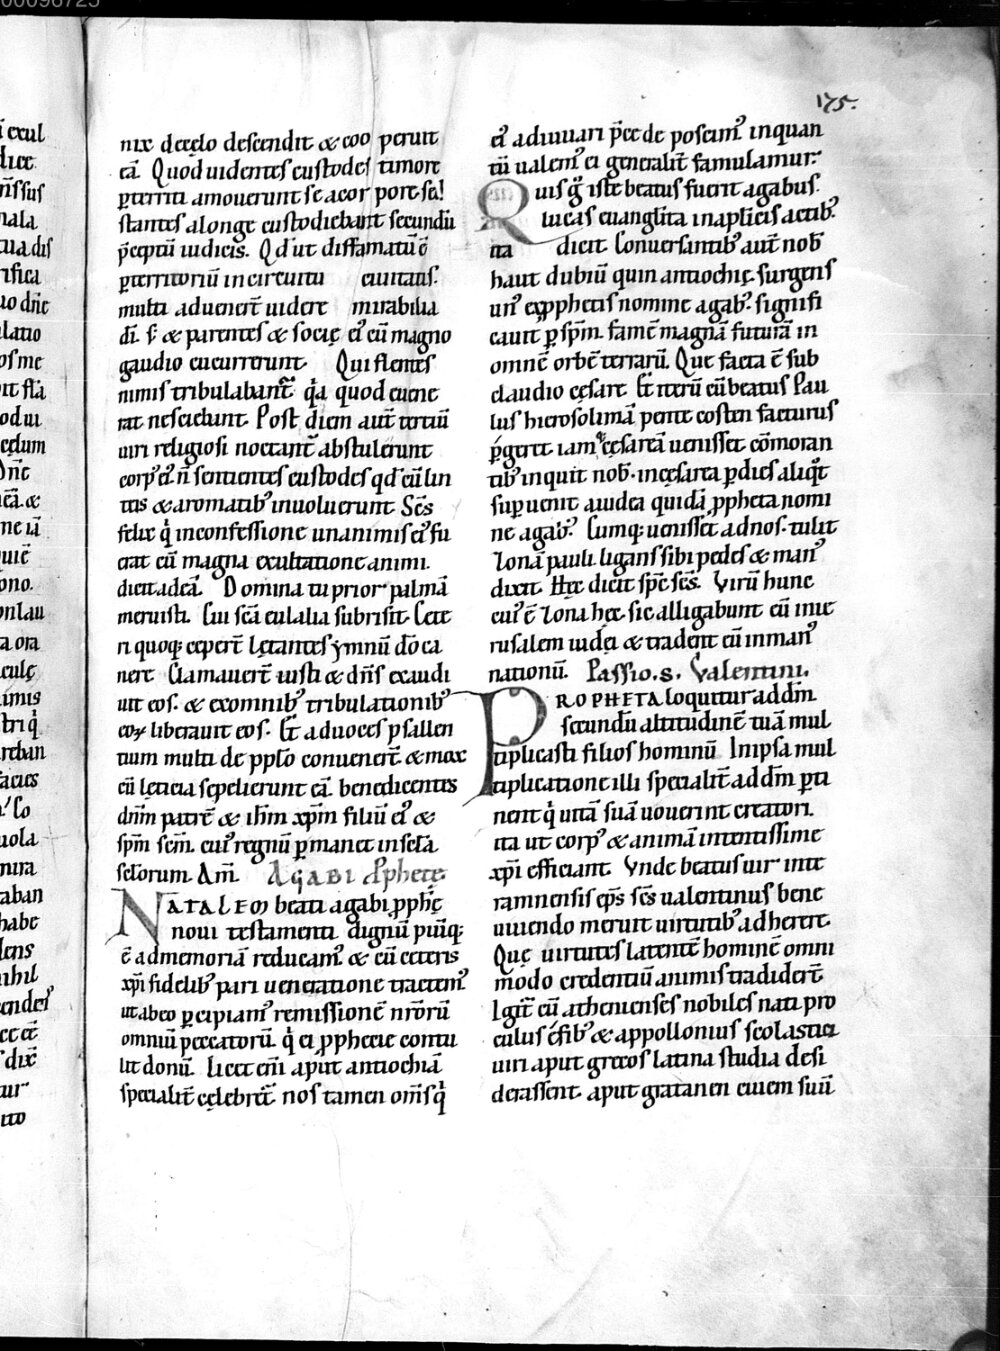 00098725
175.
nix de cęlo descendit & coo peruit
eā. Quod uidentes custodes timore
ꝑterriti amouerunt se a cor pore sa!
stantes a longe custodiebant secundū
p̄ceptū iudicis. Qd' ut diffamatū ē
ꝑ territoriū in circuitu ciuitatis.
multi aduenert̄ uidere mirabilia
dī. s; & parentes & socię ei' cū magno
gaudio cucurrerunt. Qui flentes
nimis tribulabant̄ q̄a quod euene
rat nesciebant. Post diem aut̄ tertiū
uiri religiosi noctant̄ abstulerunt
corp' ei' n̄ sentientes custodes qd' cū lin
teis & aromatib' inuoluerunt. Sc̄s
felix q̇ in confessione unanimis ei' fu
erat cū magna exultatione animi.
dicit ad eā. Domina tu prior palmā
meruisti. Cui sc̄a eulalia subrisit. Cete
ri quoq; ceper̄t lętantes ymnū dō ca
nere. Clamauer̄t iusti & dn̄s exaudi
uit eos. & ex omnib' tribulationib'
eoꝝ liberauit eos. Et ad uoces psallen
tium multi de pplō conuener̄t & max
cū lęticia sepelierunt eā. benedicentes
dn̄m patrē & ih̄m xp̄m filiū ei' & 
sp̄m sc̄m. cui' regnū ꝑmanet in sc̄la
sc̄lorum. Am̄. AGABI Pphete.
NATALEM beati agabi ꝓph̄ę
noui testamenti dignū puīq;
ē ad memoriā reducam' & cū ceteris
xp̄i fidelib' pari ueneratione tractem'
ut ab eo ꝑcipiam' remissionē nr̄orū
omniū peccatorū. q̇ ei ꝓphetie contu
lit donū. licet eni aput antiochiā
specialit̄ cęlebret̄. nos tamen om̄s q̇
ei' adiuuari p̄ce deposcim' in quan
tū ualem' ei generalit̄ famulamur.
Quis g̊ iste beatus fuerit agabus.
lucas euanglīta in aplīcis actib'.
ita dicit. Conuersantib' aut̄ nob'
haut dubiū quin antiochię. surgens
un' ex ꝓphetis nomine agab'. signifi
cauit ꝑ sp̄m. famē magnā futurā in
omnē orbē terrarū. Que facta ē sub
claudio cęsare. Et iterū cū beatus Pau
lus hierosolimā pentecosten facturus
ꝑgeret iamq; cęsareā uenisset cōmoran
tib' inquit nob'. in cęsarea ꝑ dies aliq̊t
supuenit a iudea quidā ꝓpheta nomi
ne agab'. Cumq; uenisset ad nos. tulit
zonā pauli. ligans sibi pedes & man'
dixit. Hęc dicit sp̄c sc̄s. Virū hunc
cui' ē zona hęc. sic alligabunt eū in ie
rusalem iudei & tradent eū in man'
nationū. Passio. s. Valentini.
PROPHETA loquitur ad dm̄
secundū altitudinē tuā mul
tiplicasti filios hominū. In ipsa mul
tiplicatione illi specialit̄ ad dm̄ ꝑti
nent q̇ uitā suā uouerint creatori.
ita ut corp' & animā intentissime
xp̄i efficiant. Vnde beatus uir inte
ramnensis ep̄s sc̄s ualentinus bene
uiuendo meruit uirtutib' adherere.
Quę uirtutes latentē hominē omni
modo credentiū animis tradider̄t
Igit̄ cū athenienses nobiles nati pro
culus efib' & appollonius scolastici
uiri aput grecos latina studia desi
derassent. aput gratanen ciuem suū